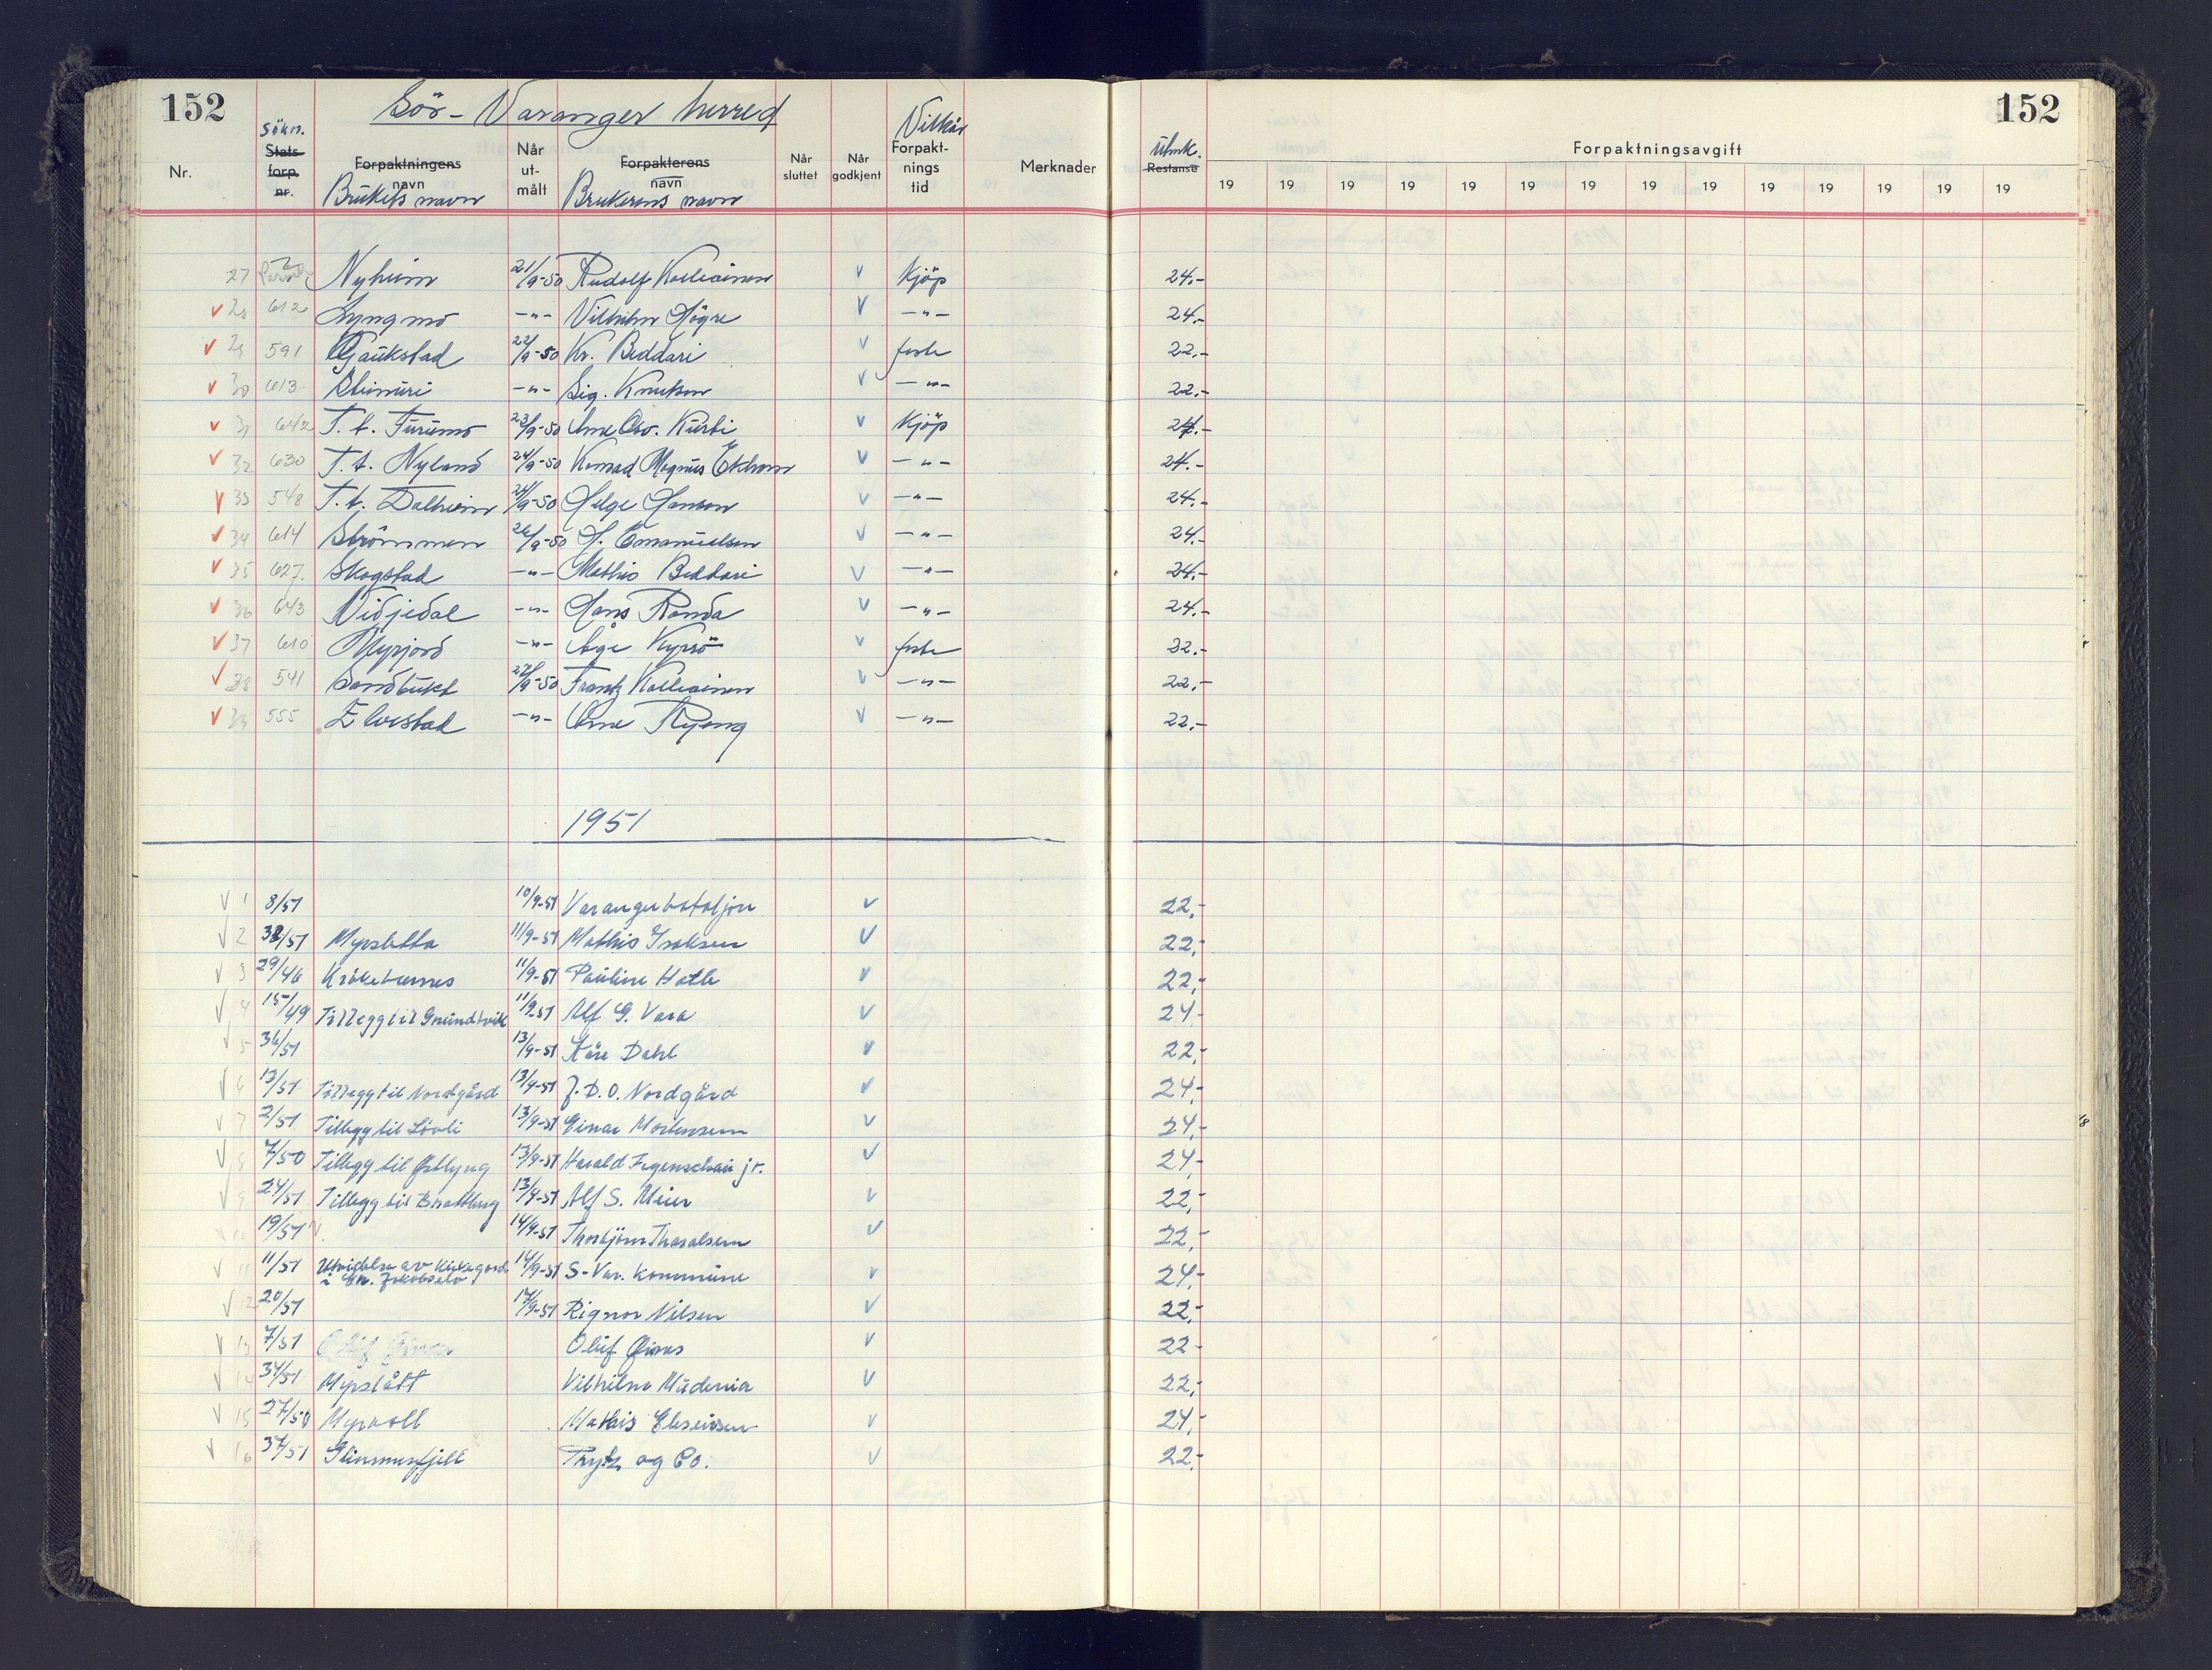 152
152
Sör-Varanger herred
Nr.
Sökn.
Stats-
forp.
nr.
Forpaktningens
navn
Brukets navn
Når
ut-
målt
Forpakterens
navn
Brukerens navn
Når
sluttet
Når
godkjent
Vilkår
Forpakt-
nings
tid
Merknader
Restanse
Forpaktningsavgift
19 19 19 19 19 19 19 19 19 19 19 19 19 19
27 Nyheim 21/9-50 Rudolf Kalliainen v Kjöp 24.-
v 28 612 Lyngmo -"- Vilhelm Högre v -"- 24.-
v 29 591 Gaukstad 22/9-50 Kr. Beddari v feste 22.-
v 30 613 -"- Sig. Knutsen v -"- 22.-
v 31 642 T.t. Furumo 23/9-50 Arne Osv. Kurti v Kjöp 24.-
v 32 630 T.t. Nyland 24/9-50 Konrad Magnus Ekholm v -"- 24.-
v 33 548 T.t. Dalheim 24/9-50 Helge Hansen v -"- 24.-
v 34 614 Strömmen 26/9-50 H. Emanuelsen v -"- 24.-
v 35 627 Skogstad -"- Mathis Beddari v -"- 24.-
v 36 643 Nidjedal -"- Hans Randa v -"- 24.-
v 37 610 Myrjord -"- Åge Kyrrö v feste 22.-
v 38 541 Sandbukt 27/9-50 Frantz Kalliainen v -"- 22.-
v 39 555 Elvestad -"- Arne Ryeng v -"- 22.-
1951
v 1 8/51 10/9-51 Varangerbataljon v 22,-
v 2 38/51 Myrsletta 11/9-51 Mathis Isaksen v 22,-
v 3 29/46 Kråkebærnes 11/9-51 Pauline Hatle v 22,-
v 4 15/49 Tillegg til Grundtvik 11/9-51 Alf G. Vara v 24,-
v 5 36/51 13/9-51 Kåre Dahl v 22,-
v 6 13/51 Tillegg til Nordgård 13/9-51 J.D.O. Nordgård v 24,-
v 7 2/51 Tillegg til Lövli 13/9-51 Einar Mortensen v 24,-
v 8 7/50 Tillegg til Østlyng 13/9-51 Harald Figenschau jr. v 24,-
v 9 24/51 Tillegg til Brattberg 13/9-51 Alf S. Meier v 22,-
v 10 19/51 14/9-51 Thorbjörn Tharaldsen v 22,-
v 11 11/51 Utvidelse av Kirkegård 14/9-51 S-Var. kommune v 24,-
i Gr. Jakobselv
v 12 20/51 17/9-51 Rignor Nilsen v 22,-
v 13 7/51 Oluf v 22,-
v 14 34/51 Myrslått Vilhelm Mudenia v 22,-
v 15 27/50 Myrvoll Mathis Eliseussen v 24,-
v 16 37/51 Trytz og Co. v 22,-